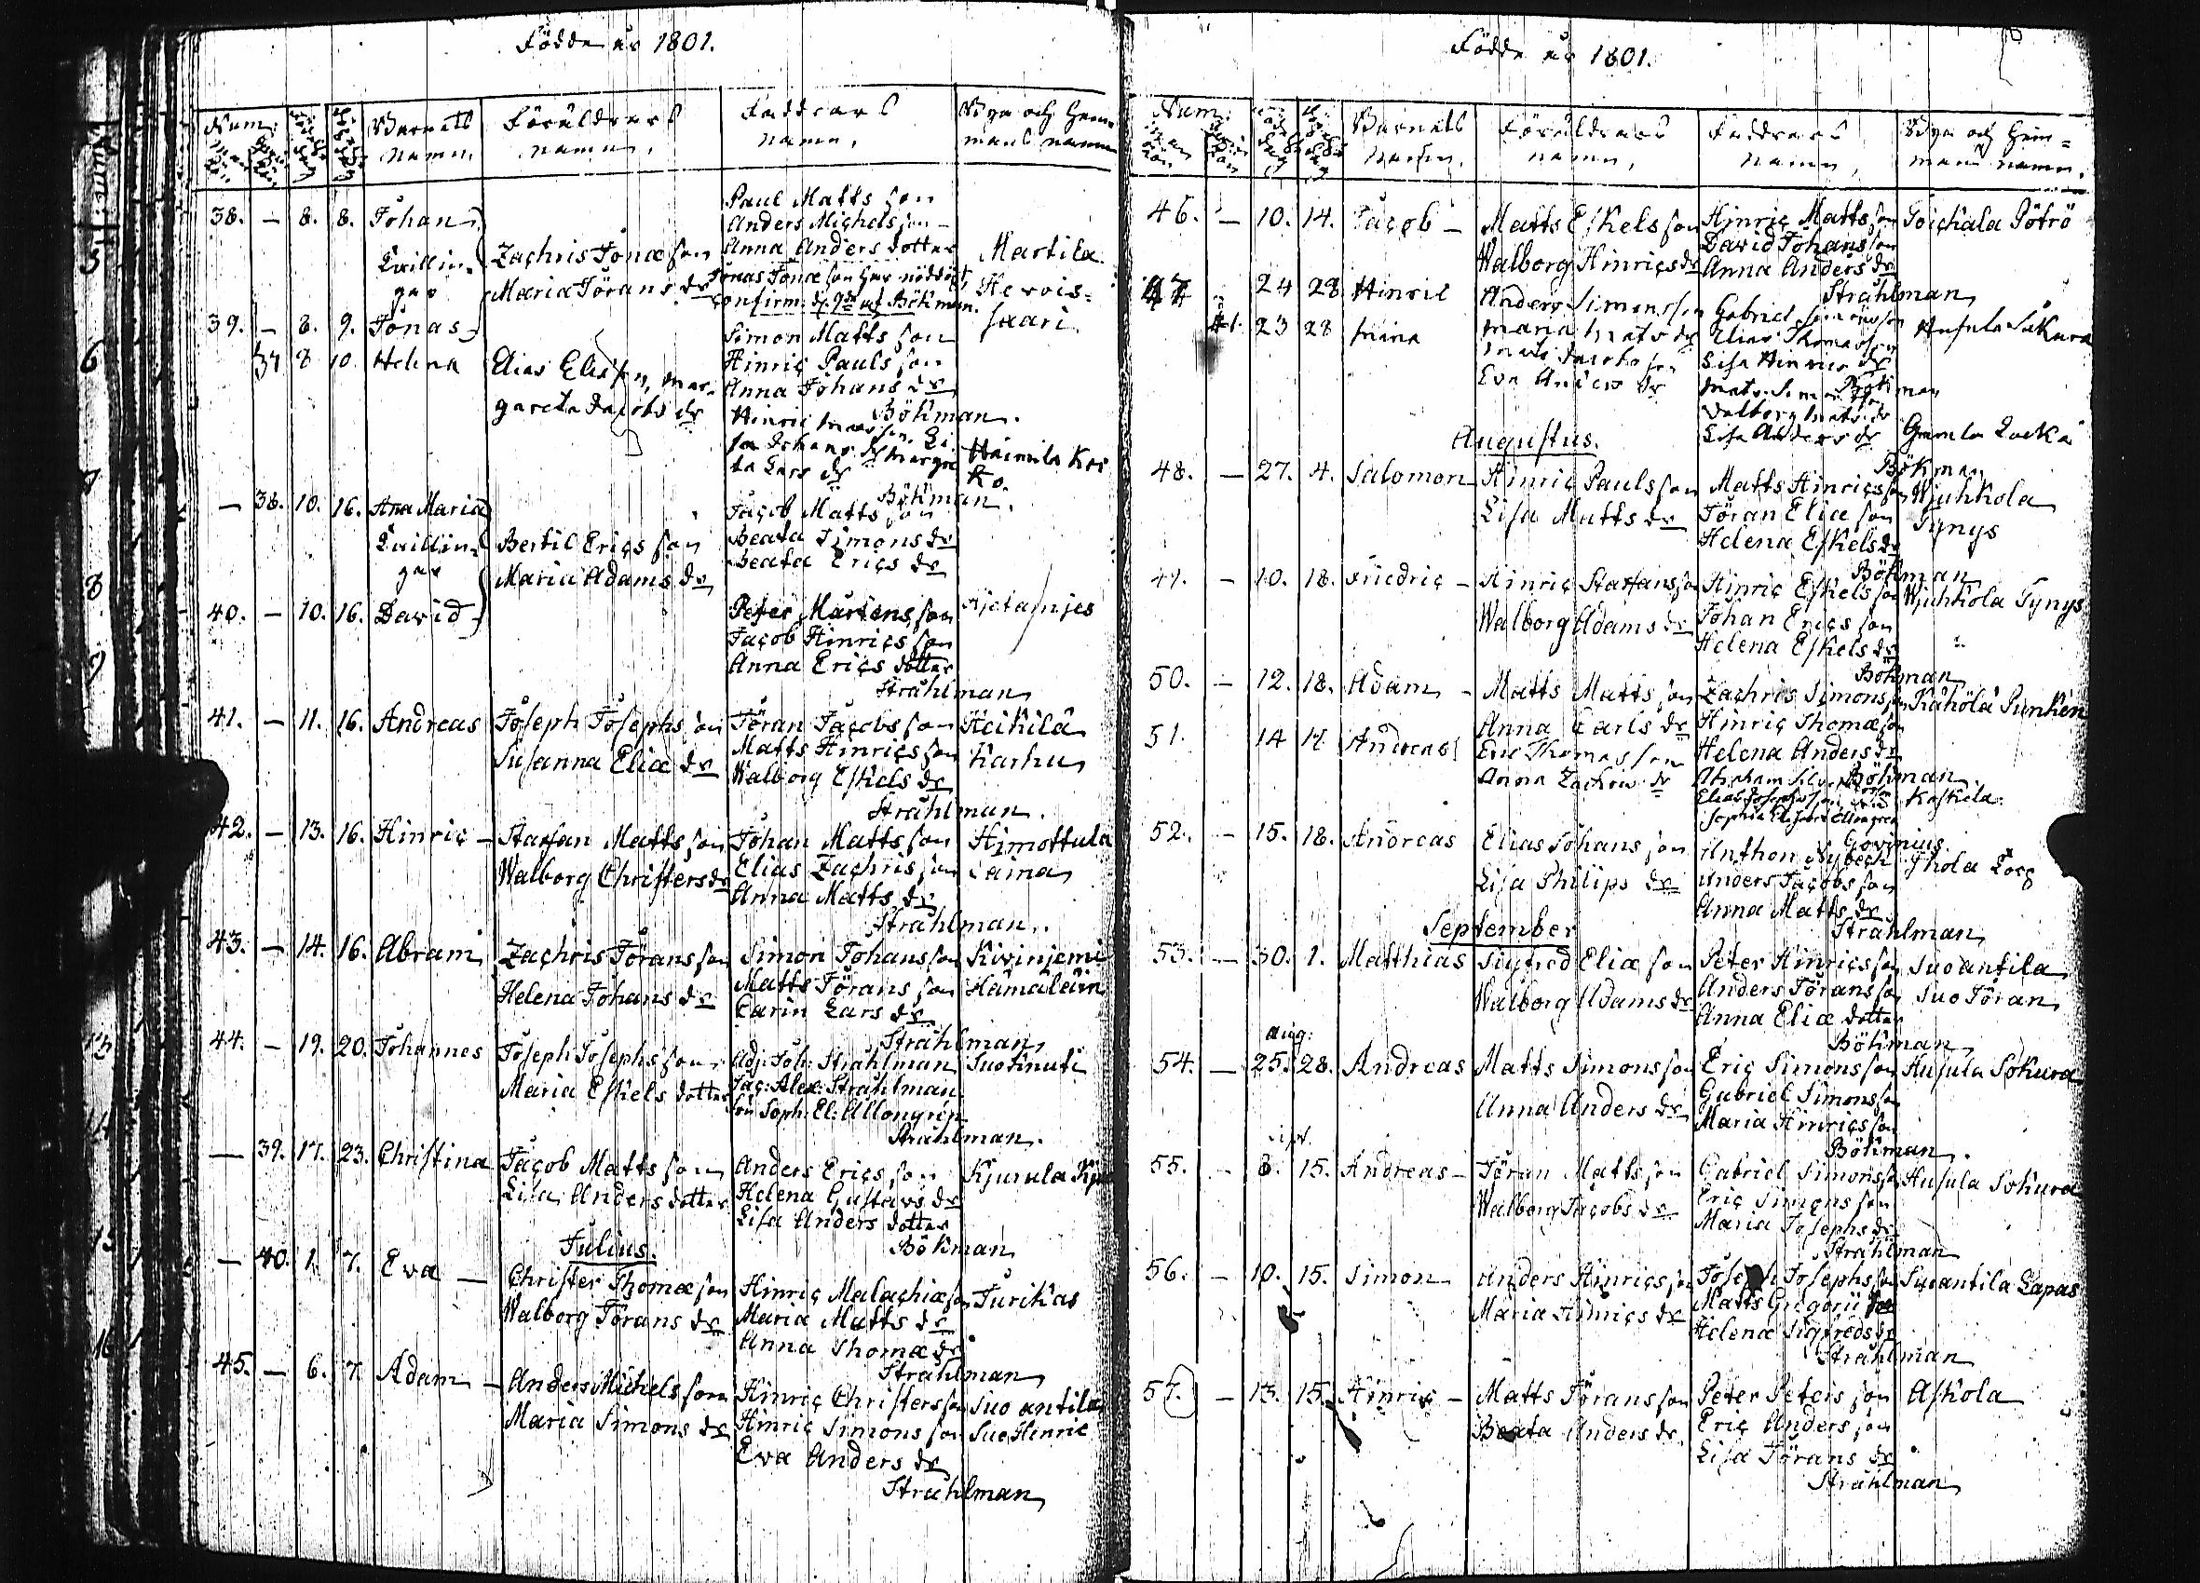 Födde år 1801.
Num:
Barnets namn.
Föräldrars namn.
Faddrars namn.
Bya och Hemmans namn
38. — 8. 8. Johan
Tvillingar
Zachris Jonæ son
Maria Jörans dr
Paul Matts son
Anders Michels son
Anna Anders dotter
Martila
Hervis=
saari
39. — 8. 9. Jonas
Simon Matts son
Hinric Pauls son
Anna Johans dr
Böhman.
37 8 10. Helena
Elias Elisson, Mar-
gareta Jacobs dr
Böhman.
— 38. 10. 16. Ana Maria
Tvillingar
Bertil Erics son
Maria Adams dr
Jacob Matts son
Beata Simons dr
Beata Erics dr
40. — 10. 16. David
Peter Mårtens son
Jacob Hinrics son
Anna Erics dotter
Strahlman
41. — 11. 16. Andreas
Joseph Josephs son
Susanna Eliæ dr
Jöran Jacobs son
Matts Hinrics son
Walborg Eskels dr
Heikilä
Karhu
Strahlman.
42. — 13. 16. Hinric
Staffan Matts son
Walborg Christers dr
Johan Matts son
Elias Zachris son
Anna Matts dr
Himottula
Laina
Strahlman.
43. — 14. 16. Abram
Zachris Jörans son
Helena Johans dr
Simon Johans son
Matts Jörans son
Carin Lars dr
Kivinjemi
Hämäläin
Strahlman
44. — 19. 20. Johannes
Joseph Josephs son
Maria Eskels dotter
Adj: Joh: Strahlman
Jac: Alex: Strahlman
Soph: El: Allongren
Suoknuti
Strahlman.
— 39. 17. 23. Christina
Jacob Matts son
Lisa Anders dotter
Anders Erics son
Helena Gustavs dr
Lisa Anders dotter
Kjurula
Böhman
Julius.
— 40. 1. 7. Eva —
Christer Thomæ son
Walborg Jörans dr
Hinric Malachiæ son
Maria Matts dr
Anna Thomæ dr
Turikas
Strahlman
45. — 6. 7. Adam —
Anders Michels son
Maria Simons dr
Hinric Christers son
Hinric Simons son
Eva Anders dr
Suo antila
Suo Hinric
Strahlman
Födde år 1801.
Num:
Barnets namn.
Föräldrars namn,
Faddrars namn,
Bya och Hem=
mans namn.
46. — 10. 14. Jacob —
Matts Eskels son
Walborg Hinrics dr
Hinric Matts son
David Johans son
Anna Anders dr
Strahlman
47 24 28 Hinric
Anders Simonsson
Maria Mats dr
Gabriel Simonsson
Elias Thomasson
Lisa Hinrics dr
41. 23 28
Eva Anders dr
Lisa Anders dr
Böhman
Augustus.
48. — 27. 4. Salomon
Hinric Pauls son
Lisa Matts dr
Matts Hinrics son
Jöran Eliæ son
Helena Eskels dr
Wjuhkola
Tynys
Böhman
— 10. 18. Friedric —
Hinric Staffans son
Walborg Adams dr
Hinric Eskels son
Johan Erics son
Helena Eskels dr
Wjuhkola Tynys
Böhman
50. — 12. 18. Adam —
Matts Matts son
Anna Carls dr
Zachris Simons son
Hinric Thomæ son
Helena Anders dr
Kähölä Punken
Böhman.
51. 14 17. Andreas
Eric Thomasson
Anna Zachris dr
Koskela.
Govinius.
52. — 15. 18. Andreas
Elias Johans son
Lisa Philips dr
Anthon Nybech
Anders Jacobs son
Anna Matts dr
Strahlman
September
53. — 30. 1. Matthias
Sigfred Eliæ son
Walborg Adams dr
Peter Hinrics son
Anders Jörans son
Anna Eliæ dotter
Suoantila
Suo Jöran
Böhman
Aug:
54. — 25. 28. Andreas
Matts Simons son
Anna Anders dr
Eric Simons son
Gabriel Simons son
Maria Hinrics son
Husula Sokura
Böhman.
55. 8. 15. Andreas —
Jöran Matts son
Walborg Jacobs dr
Gabriel Simons son
Eric Simons son
Maria Josephs dr
Husula Sokura
Strahlman
56. — 10. 15. Simon
Anders Hinrics son
Maria Hinrics dr
Joseph Josephs son
Matts Gregorii son
Helena Sigfreds dr
Suoantila Lapas
Strahlman
57. — 13. 15. Hinric —
Matts Jörans son
Beata Anders dr
Peter Peters son
Eric Anders son
Lisa Jörans dr
Askola
Strahlman